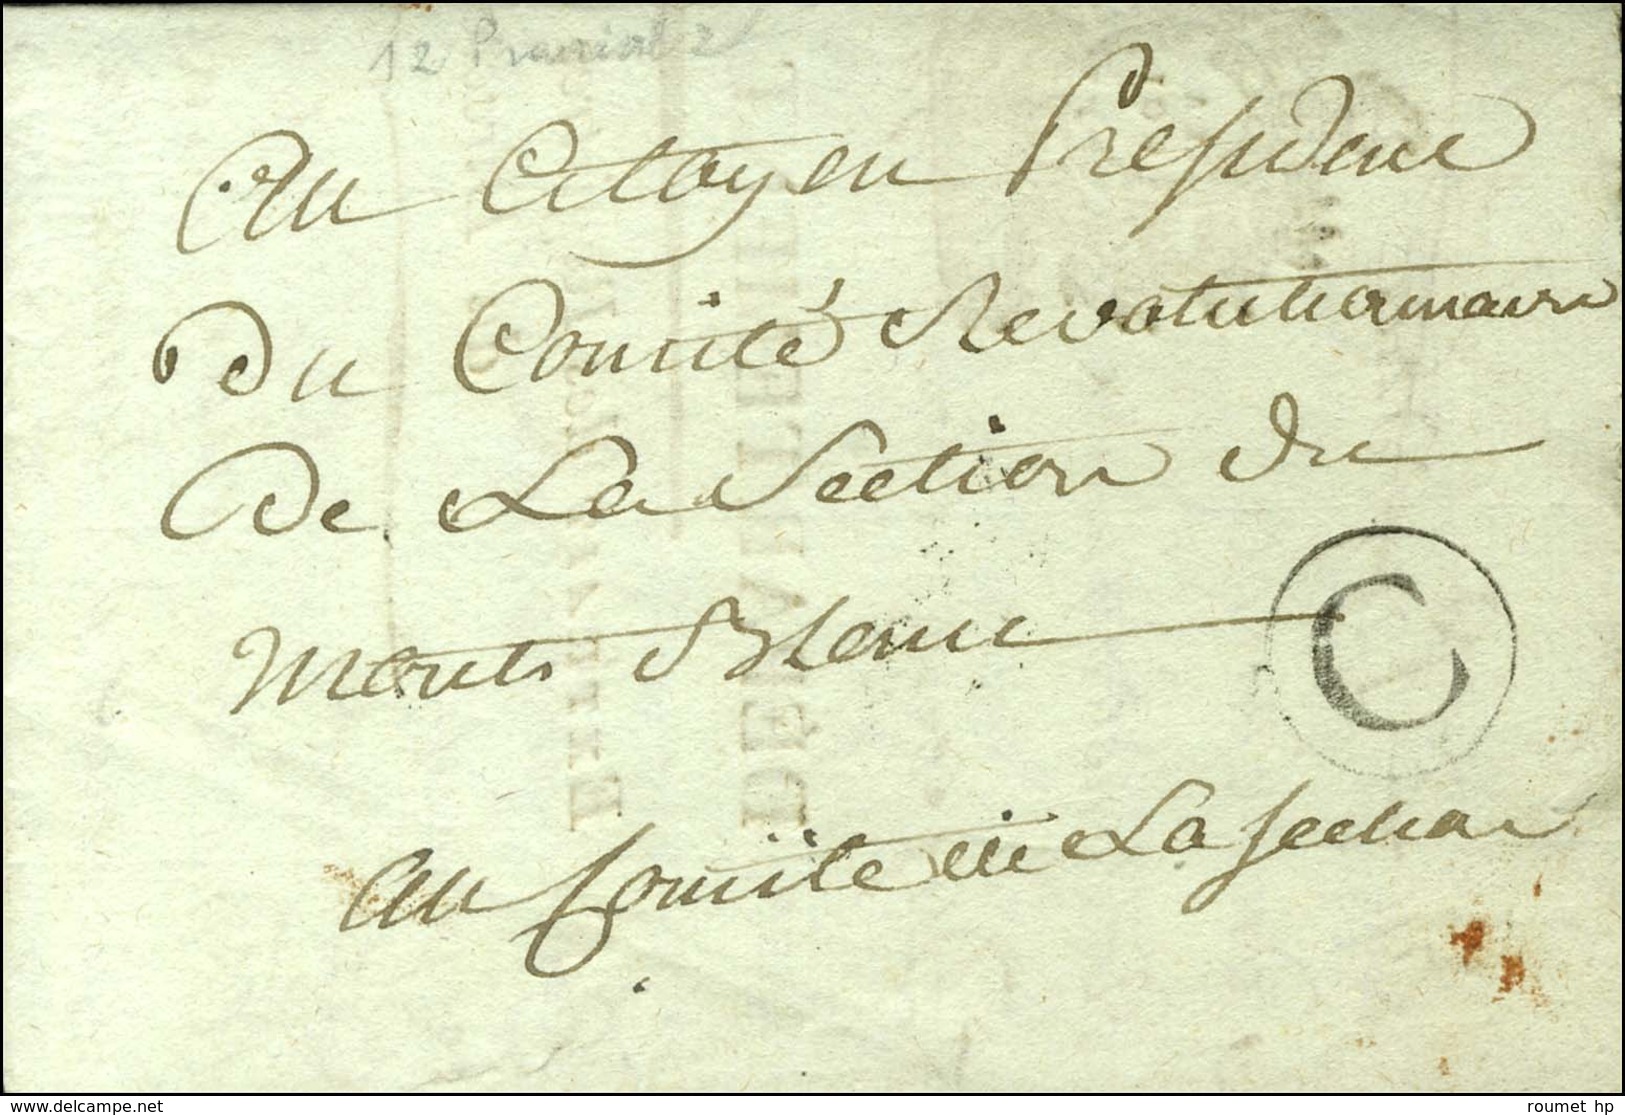 12 Prairial 2
Au Citoyen President
Du Comité Revolutionnaire
De La Section du
Mont Blanc
C
au Comite de La Section
www.delcampe.net
roumet hp